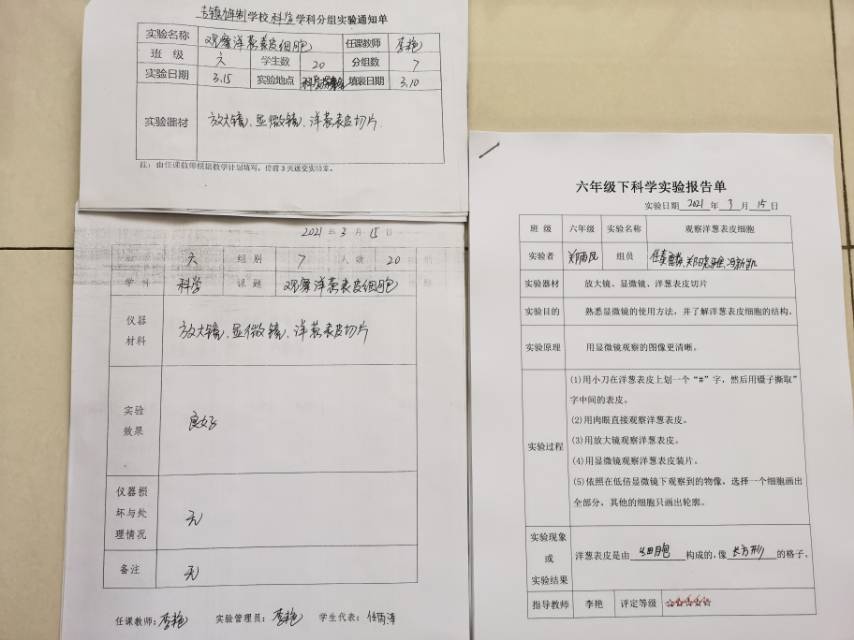 学校科学学科分组实验通知单
实验名称 观察洋葱表皮细胞 任课教师 李艳
班 级 六 学生数 20 分组数 7
实验日期 3.15 实验地点 填表日期 3.10
实验器材 放大镜、显微镜、洋葱表皮切片
注：由任课教师根据教学计划填写，提前3天送交实验室。
2021年3月15日
六 组别 7 人数 20
学科 科学 课题 观察洋葱表皮细胞
仪器
材料 放大镜、显微镜、洋葱表皮切片
实验
效果 良好
仪器损
坏与处
理情况 无
备注 无
任课教师：李艳 实验管理员：李艳 学生代表：
六年级下科学实验报告单
实验日期 2021 年 3 月 15 日
班 级 六年级 实验名称 观察洋葱表皮细胞
实验者 组员
实验器材 放大镜、显微镜、洋葱表皮切片
实验目的 熟悉显微镜的使用方法，并了解洋葱表皮细胞的结构。
实验原理 用显微镜观察的图像更清晰。
实验过程
(1)用小刀在洋葱表皮上划一个“#”字，然后用镊子撕取”
字中间的表皮。
(2)用肉眼直接观察洋葱表皮。
(3)用放大镜观察洋葱表皮。
(4)用显微镜观察洋葱表皮装片。
(5)依照在低倍显微镜下观察到的物像，选择一个细胞画出
全部分，其他的细胞只画出轮廓。
实验现象
或
实验结果
洋葱表皮是由 细胞 构成的，像 长方形 的格子。
指导教师 李艳 评定等级 ☆☆☆☆☆